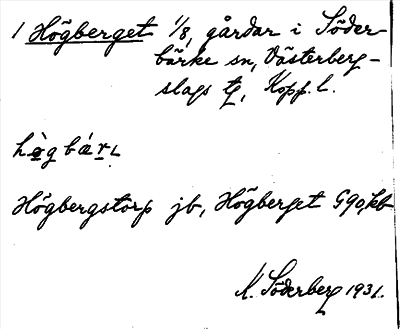 1 Högberget 1/8, gårdar i Söder-
bärke sn, Västerberg-
slags tg, Kopp. l.
hògbár.
Högbergstorp jb, Högberget G90, kb
K. Söderberg 1931.